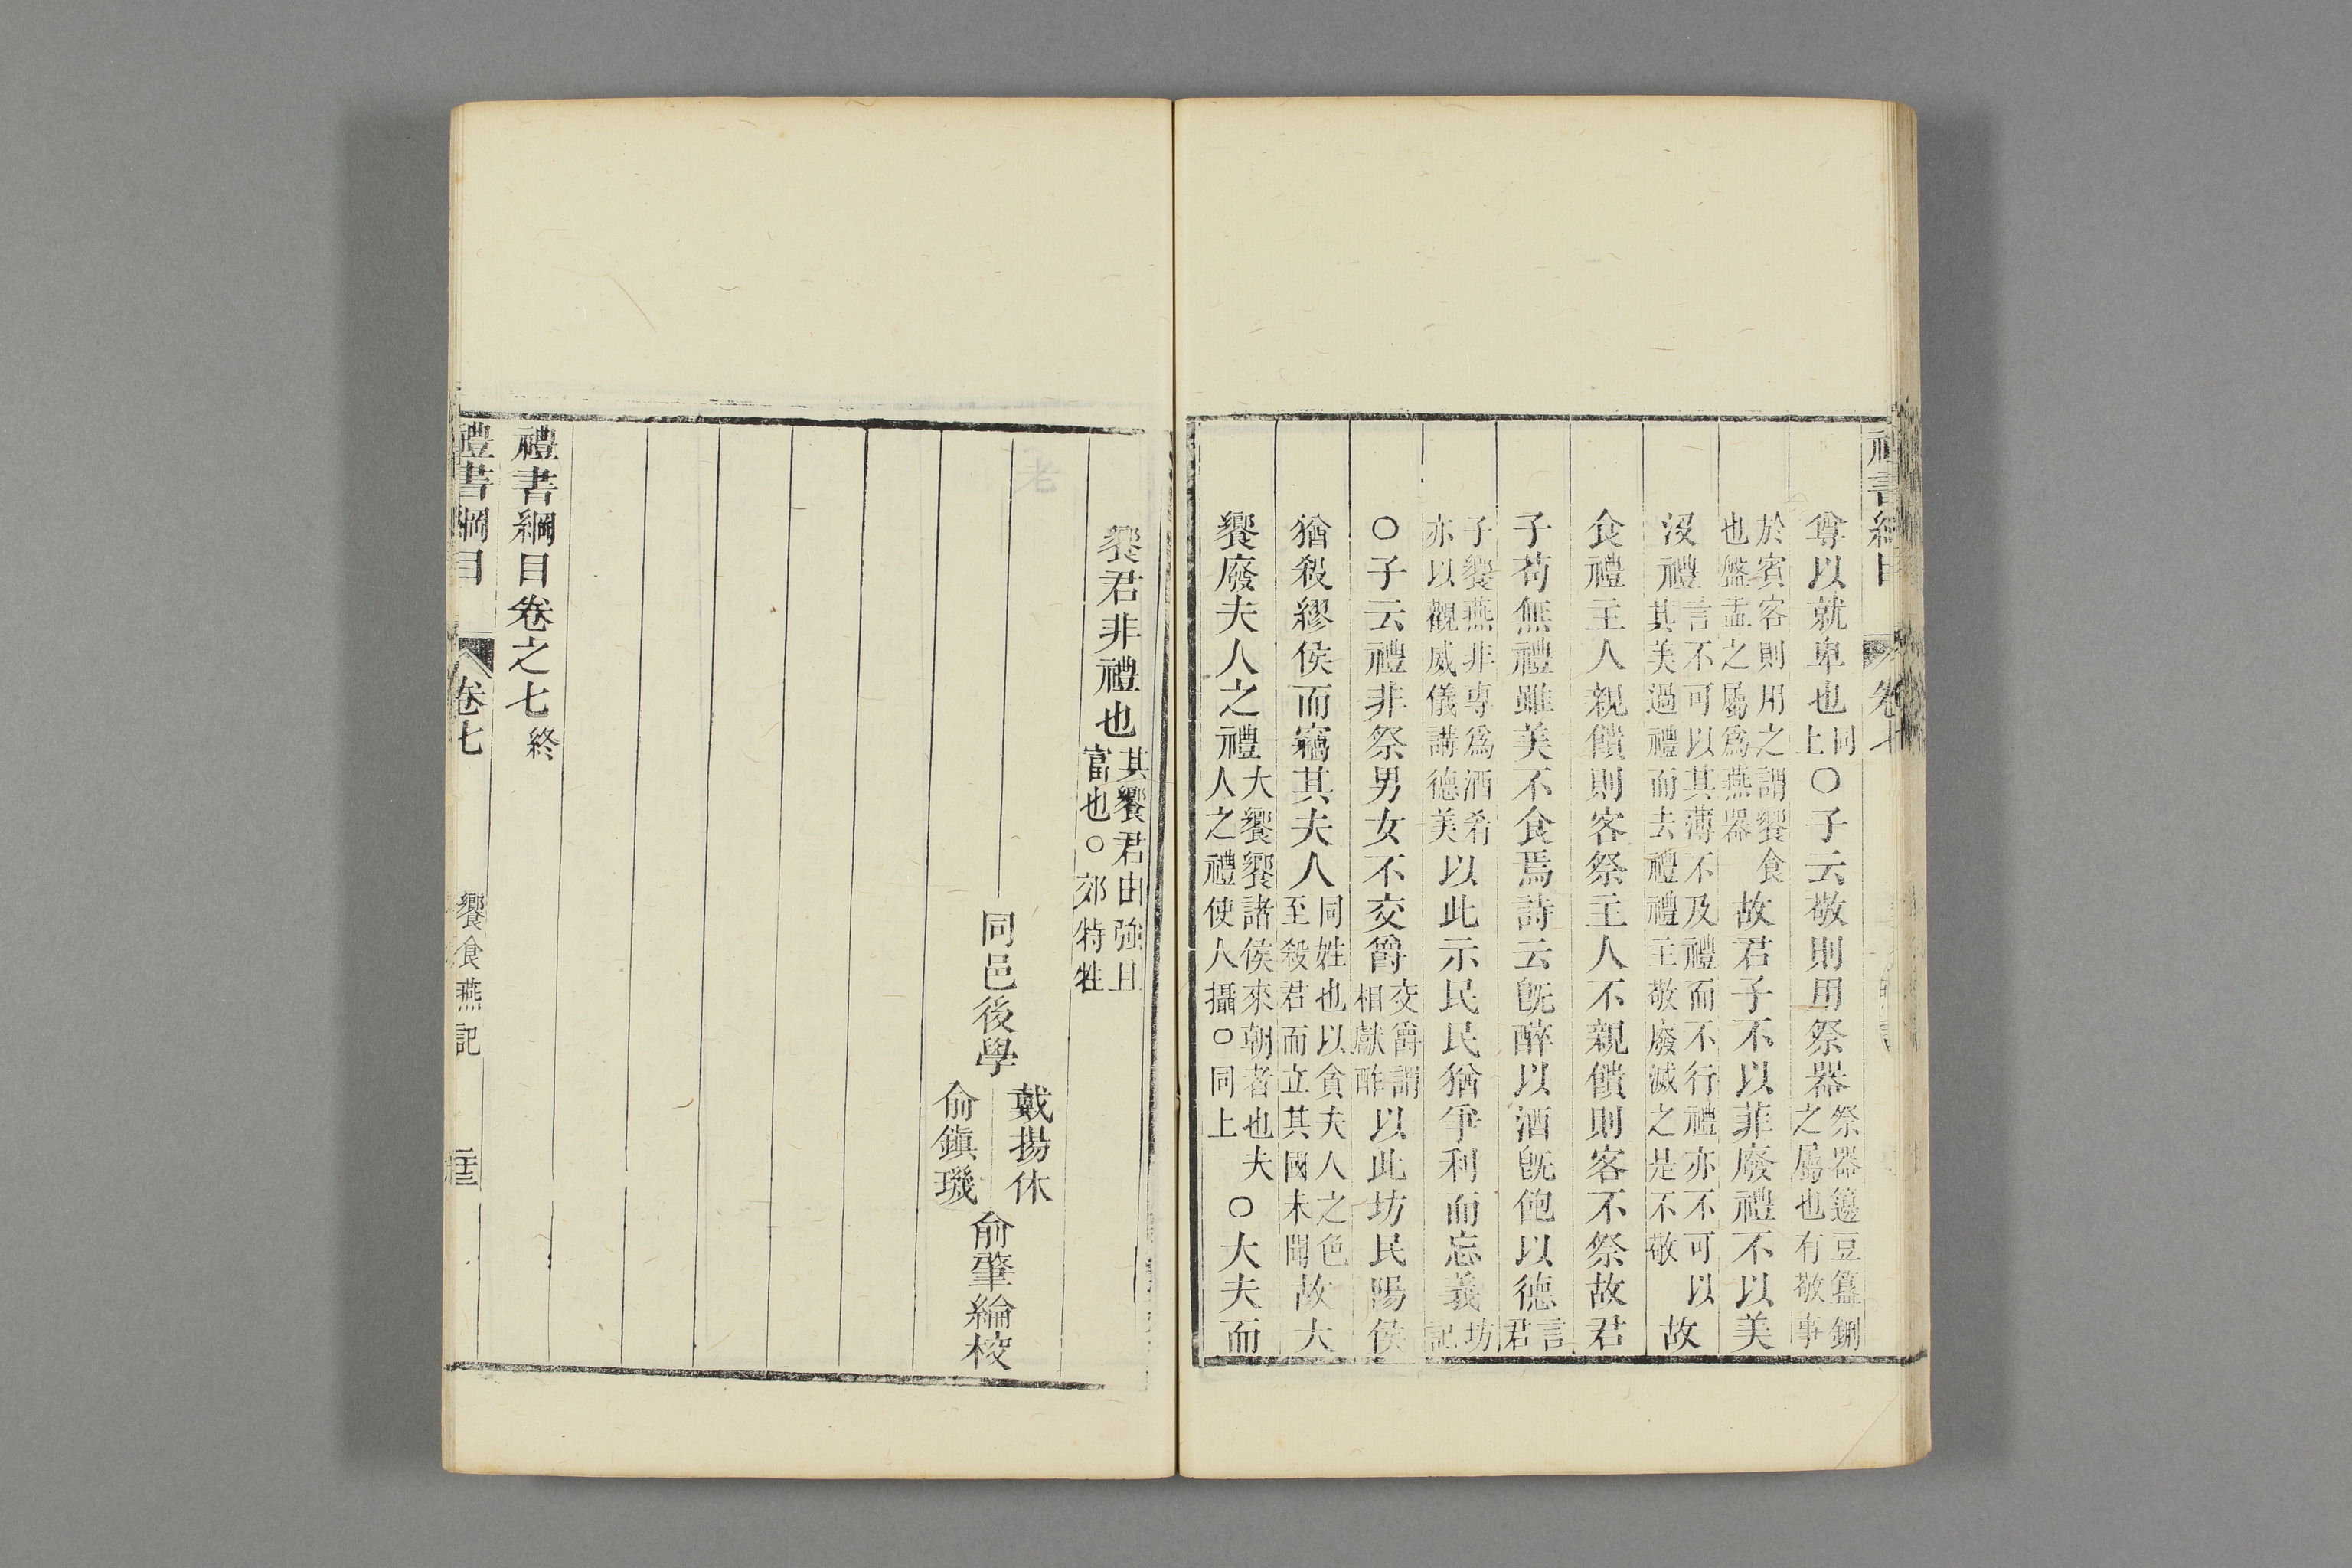 禮書綱目 卷七
尊以就卑也同上○子云敬則用祭器祭器籩豆簋鉶之屬也有敬事
於賓客則用之謂饗食也盤盂之屬爲燕器故君子不以菲廢禮不以美
沒禮言不可以其薄不及禮而不行禮亦不可以其美過禮而去禮禮主敬廢滅之是不敬故
食禮主人親饋則客祭主人不親饋則客不祭故君
子苟無禮雖美不食焉詩云旣醉以酒旣飽以德言君
子饗燕非專爲酒肴亦以觀威儀講德美以此示民民猶爭利而忘義坊記
○子云禮非祭男女不交爵交爵謂相獻酢以此坊民陽侯
猶殺繆侯而竊其夫人同姓也以貪夫人之色至殺君而立其國未聞故大
饗廢夫人之禮大饗饗諸侯來朝者也夫人之禮使人攝○同上○大夫而
饗君非禮也其饗君由強且富也○郊特牲
同邑後學戴揚休俞鎭璣俞肇綸校
禮書綱目卷之七終
禮書綱目 卷七 饗食燕記